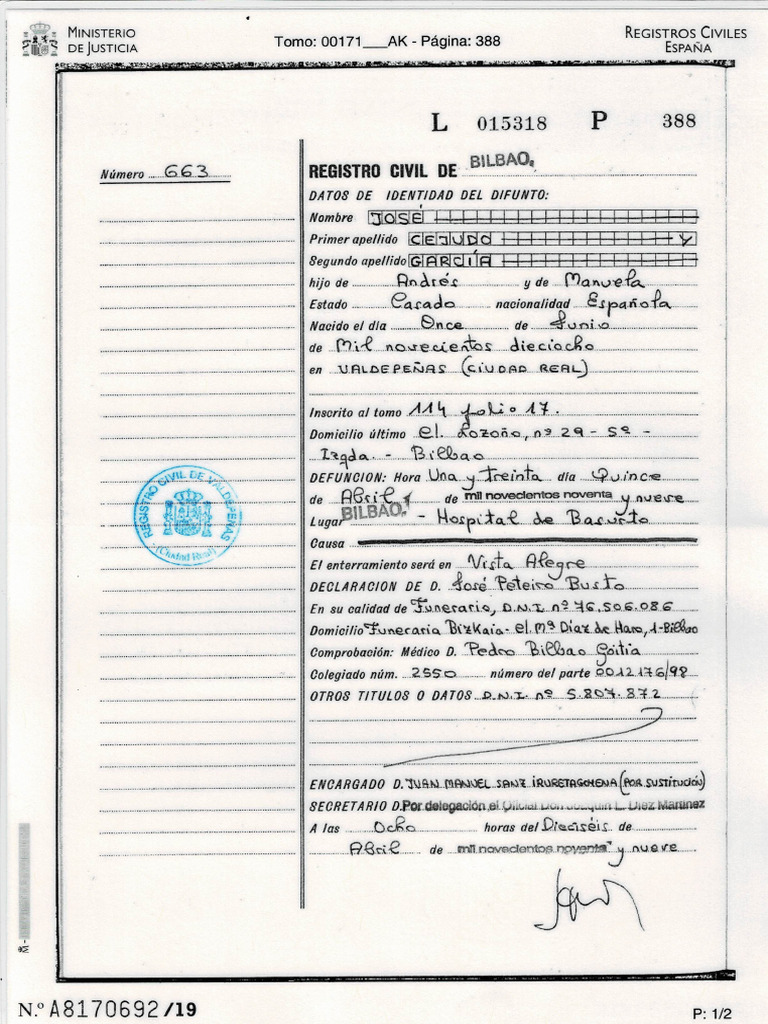 MINISTERIO
DE JUSTICIA
Tomo: 00171___AK - Página: 388
REGISTROS CIVILES
ESPAÑA
L 015318 P 388
Número 663
REGISTRO CIVIL DE BILBAO.
DATOS DE IDENTIDAD DEL DIFUNTO:
Nombre JOSÉ
Primer apellido CEJUDO Y
Segundo apellido GARCÍA
hijo de Andrés y de Manuela
Estado Casado nacionalidad Española
Nacido el día Once de Junio
de Mil novecientos dieciocho
en VALDEPEÑAS (CIUDAD REAL)
Inscrito al tomo 114 folio 17.
Domicilio último el. Lozoño, nº 29 - 5º -
Izqda. - Bilbao
DEFUNCION: Hora Una y treinta día Quince
de Abril de mil novecientos noventa y nueve
Lugar BILBAO. - Hospital de Basurto
Causa
El enterramiento será en Vista Alegre
DECLARACION DE D. José Peteiro Busto
En su calidad de Funerario, D.N.I. nº 76.506.086
Domicilio Funeraria Bizkaia - el. Mª Diaz de Haro, 1-Bilbao
Comprobación: Médico D. Pedro Bilbao Goitia
Colegiado núm. 2550 número del parte 0012176/98
OTROS TITULOS O DATOS D.N.I. nº 5.807.872
ENCARGADO D. JUAN MANUEL SANZ IRURETAGOIENA (POR SUSTITUCIÓN)
SECRETARIO D. Por delegación el Oficial Don Joaquin L. Diez Martinez
A las Ocho horas del Dieciséis de
Abril de mil novecientos noventa y nueve
REGISTRO CIVIL DE VALDEPEÑAS
(Ciudad Real)
M-
N.º A8170692/19
P: 1/2